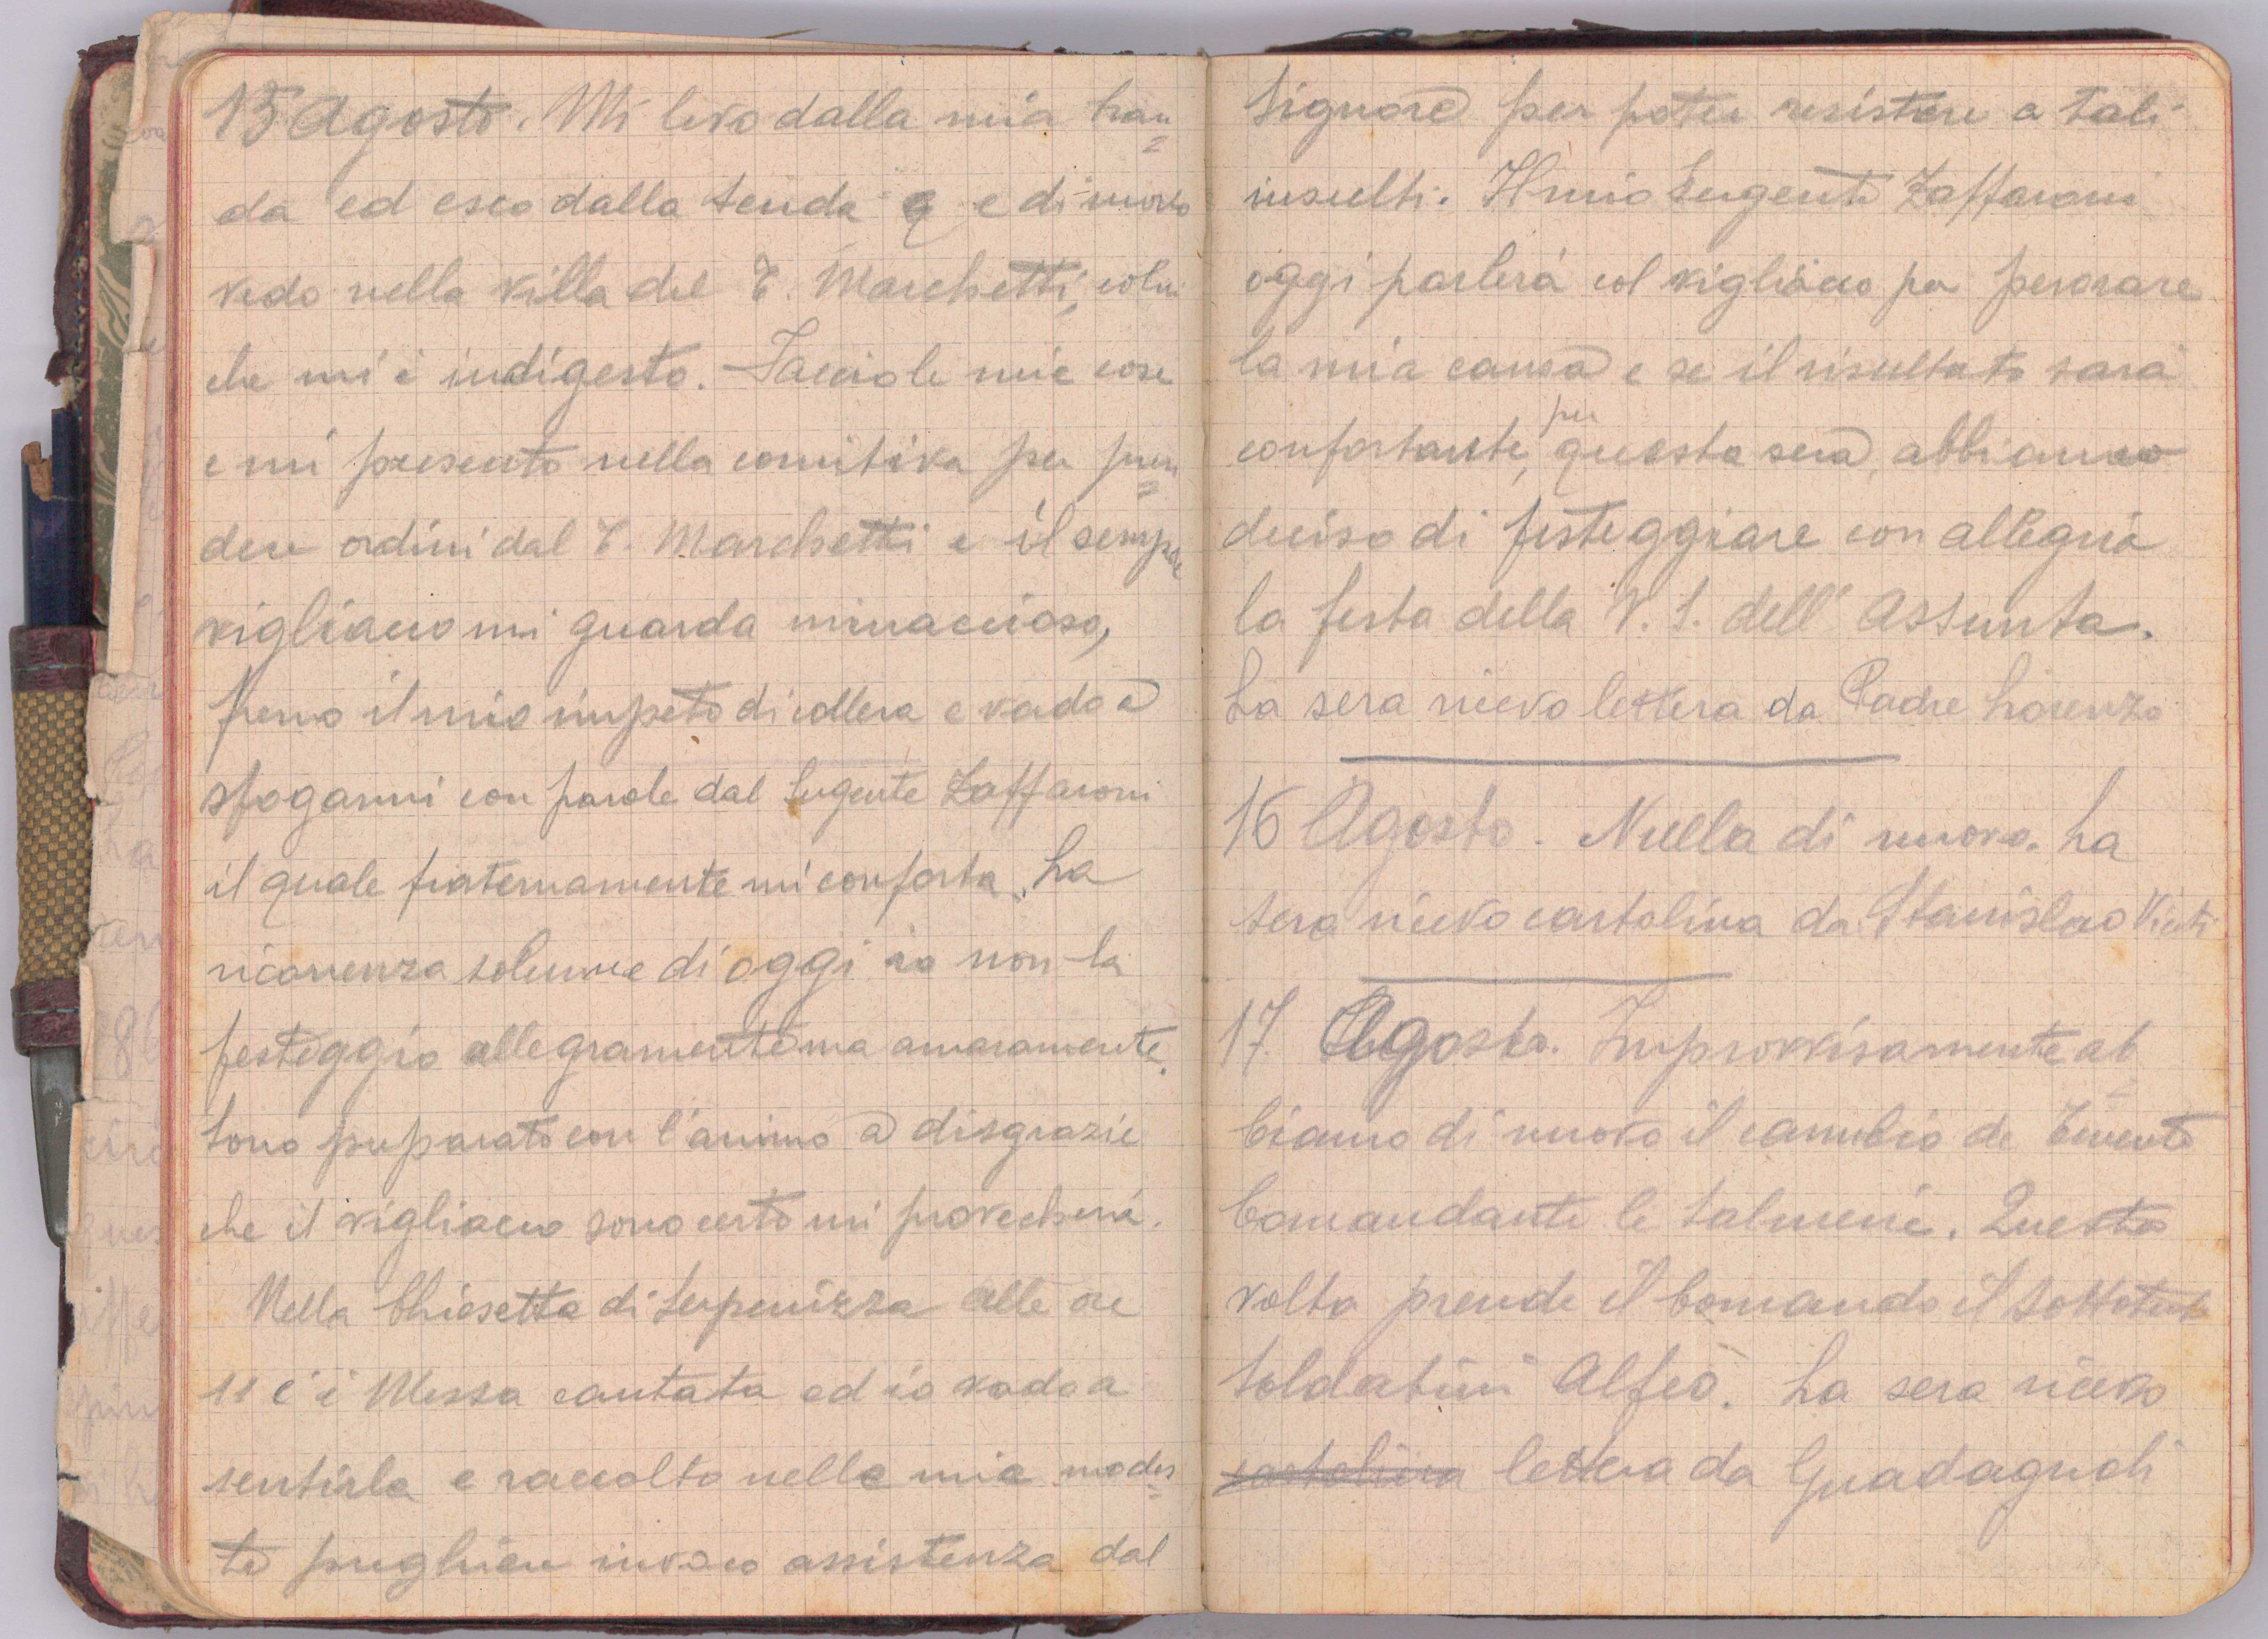 15 Agosto. Mi levo dalla mia bran=
da ed esco dalla tenda e di nuovo
vedo nella villa del T. Marchetti, colui
che mi è indigesto. Faccio le mie cose
e mi presento nella comitiva per pren=
dere ordini dal T. Marchetti e il sempre
vigliacco mi guarda minaccioso,
freno il mio impeto di collera e vado a
sfogarmi con parole dal Sergente Zaffaroni
il quale fraternamente mi conforta. La
ricorrenza solenne di oggi io non la
festeggio allegramente ma amaramente.
Sono preparato con l'animo a disgrazie
che il vigliacco sono certo mi provecherà.
Nella Chiesetta di Serpenizza alle ore
11 c'è Messa cantata ed io vado a
sentirla e raccolto nelle mie modes=
te preghiere invoco assistenza dal
Signore per poter resistere a tali
insulti. Il mio Sergente Zaffaroni
oggi parlerà col vigliacco per perorare
la mia causa e se il risultato sarà
confortante, per questa sera, abbiamo
deciso di festeggiare con allegria
la festa della V. S. dell'Assunta.
La sera ricevo lettera da Padre Lorenzo
16 Agosto. Nulla di nuovo. La
sera ricevo cartolina da Stanislao
17. Agosto. Improvvisamente ab=
biamo di nuovo il cambio de Tenente
Comandante le Salmerie. Questa
volta prende il Comando il Sottotente
Soldatini Alfeo. La sera ricevo
cartolina lettera da Guadagnoli